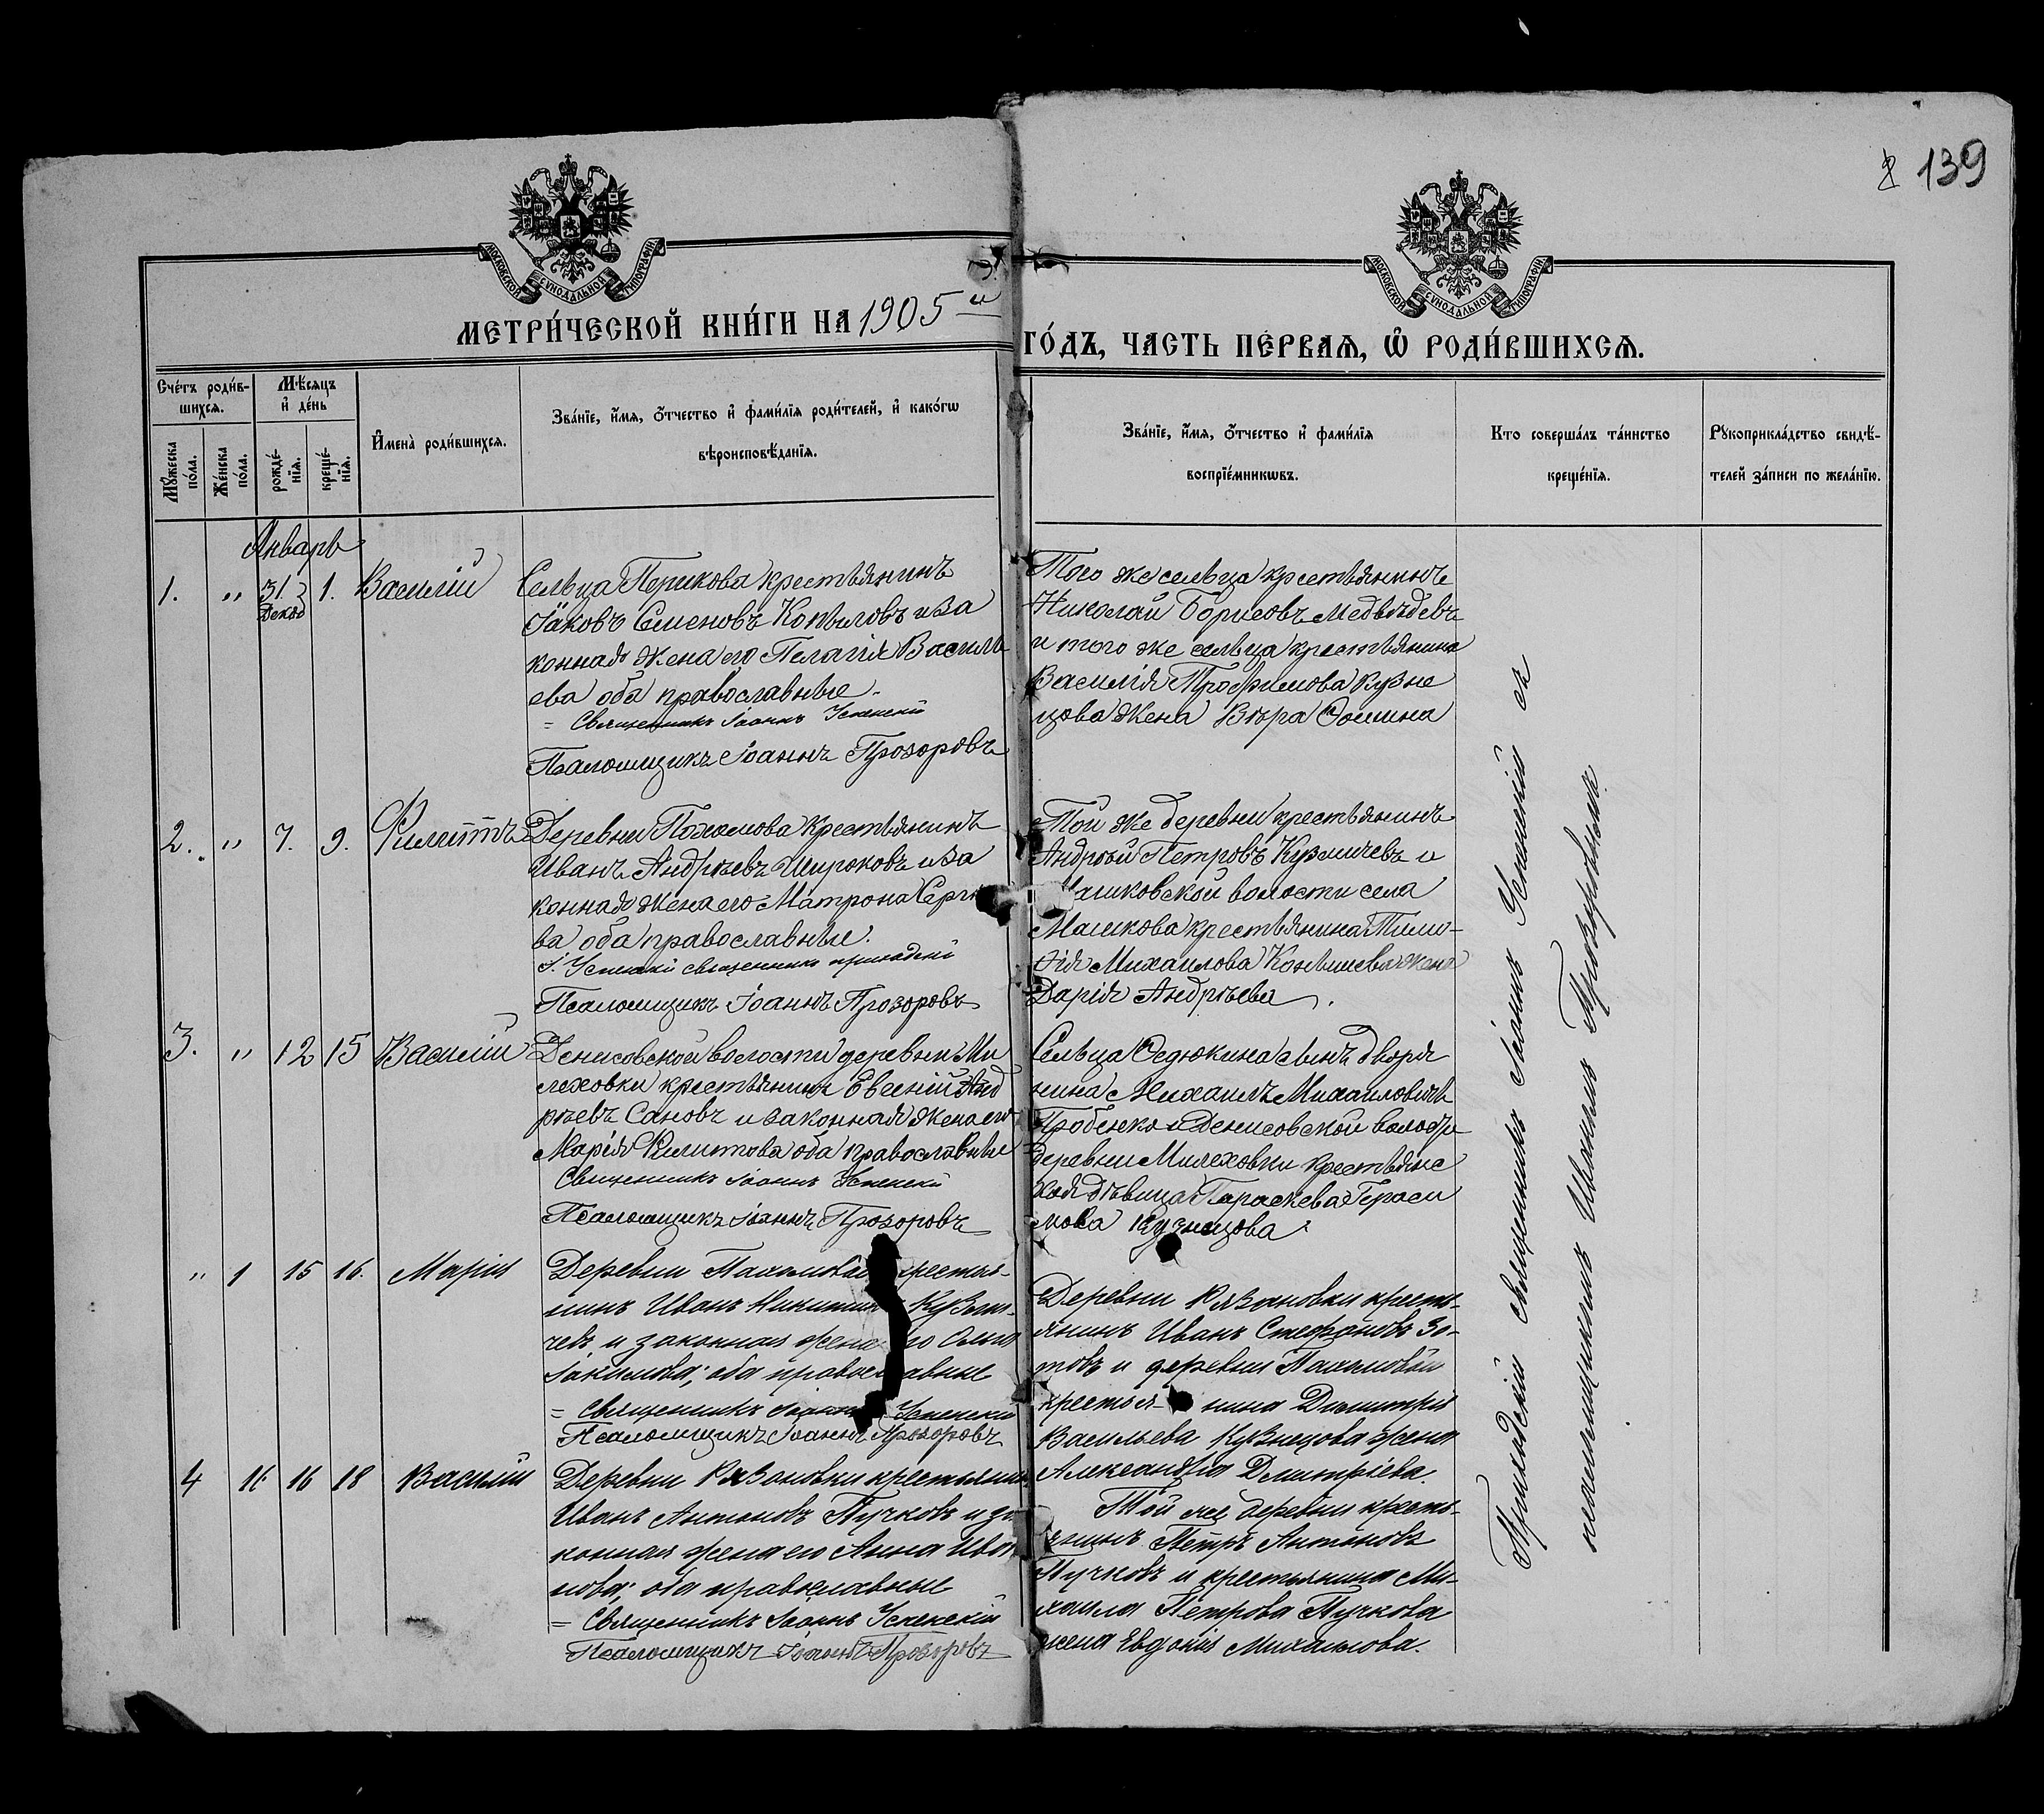 2 139
МОСКОВСКОЙ СУНОДАЛЬНОЙ ТИПОГРАФІИ
МОСКОВСКОЙ СУНОДАЛЬНОЙ ТИПОГРАФІИ
МЕТРИ́ЧЕСКОЙ КНИ́ГИ НА 1905й
ГО́ДЪ, ЧАСТЬ ПЕ́РВАЯ, Ѡ҆ РОДИ́ВШИХСѦ.
Сче́тъ роди́в-
шихсѧ.
Мѣ́сяцъ
и҆ де́нь
Му́жеска
по́ла.
Же́нска
по́ла.
рожде́-
нїѧ.
креще́-
нїѧ.
И҆мена̀ роди́вшихсѧ.
Зва́нїе, и҆́мѧ, о҆́тчество и҆ фами́лїѧ роди́телей, и҆ како́гѡ
вѣроисповѣ́данїѧ.
Зва́нїе, и҆́мѧ, о҆́тчество и҆ фами́лїѧ
воспрїе́мникѡвъ.
Кто соверша́лъ та́инство
креще́нїѧ.
Рꙋкоприкла́дство свидѣ́-
телей за́писи по жела́нїю.
Январь
1. " 31 Декаб 1. Василій
Сельца Перикова крестьянинъ
Іаковъ Семеновъ Копыловъ и за
конная жена его Пелагія Василь
ева оба православные
= Священникъ Іоаннъ Успенскій
Псаломщикъ Іоаннъ Прозоровъ
Того же сельца крестьянинъ
Николай Борисовъ Медвѣдевъ
и того же сельца крестьянина
Василія Трофимова Кузне
цова жена Вѣра Ѳомина
2. " 7. 9. Филиппъ
Деревни Пахомова крестьянинъ
Иванъ Андрѣевъ Широковъ и за
конная жена его Матрона Серг
ва оба православные.
І. Успенскій священникъ приходскій
Псаломщикъ Іоаннъ Прозоровъ
Той же деревни крестьянинъ
Андрей Петровъ Кузмичевъ и
Машковской волости села
Машкова крестьянина Тимо-
ѳія Михаилова жена
Дарія Андрѣева.
3. " 12 15 Василій
Денисовской волости деревни Ми
леховки крестьянинъ Евсеній Анд
рѣевъ Сановъ и законная жена его
Марія Филиппова оба православные
Священникъ Іоаннъ Успенскій
Псаломщикъ Іоаннъ Прозоровъ
Сельца Федюкина сынъ дворя
нина Михаилъ Михаиловичъ
Гробенко и Денисовской волости
деревни Милеховки крестьянс
кая дѣвица Параскева Гераси
мова Кузнецова
" 1 15 16. Марія
Деревни Пахомовой крестья-
нинъ Иванъ Никитинъ Кузьми-
чевъ и законная жена его Ольга
Іакимова; оба православные
= Священникъ Іоаннъ Успенскій
Псаломщикъ Іоаннъ Прозоровъ
Деревни Рязановки кресть-
янинъ Иванъ Стефановъ Зо-
товъ и деревни Пахомовой
крестья- нина Димитрія
Васильева Кузнецова жена
Александра Дмитріева.
4 " 16 18 Василій
Деревни Рязановки крестьянинъ
Иванъ Антоновъ Пучковъ и за-
конная жена его Анна Ива-
нова; оба православные
= Священникъ Іоаннъ Успенскій
Псаломщикъ Іоаннъ Прозоровъ
Той же деревни кресть-
янинъ Петръ Антоновъ
Пучковъ и крестьянина Ми-
хаила Петрова Пучкова
жена Евдокія Михаилова.
Приходскій священникъ Іоаннъ Успенскій съ
псаломщикомъ Иваномъ Прозоровымъ